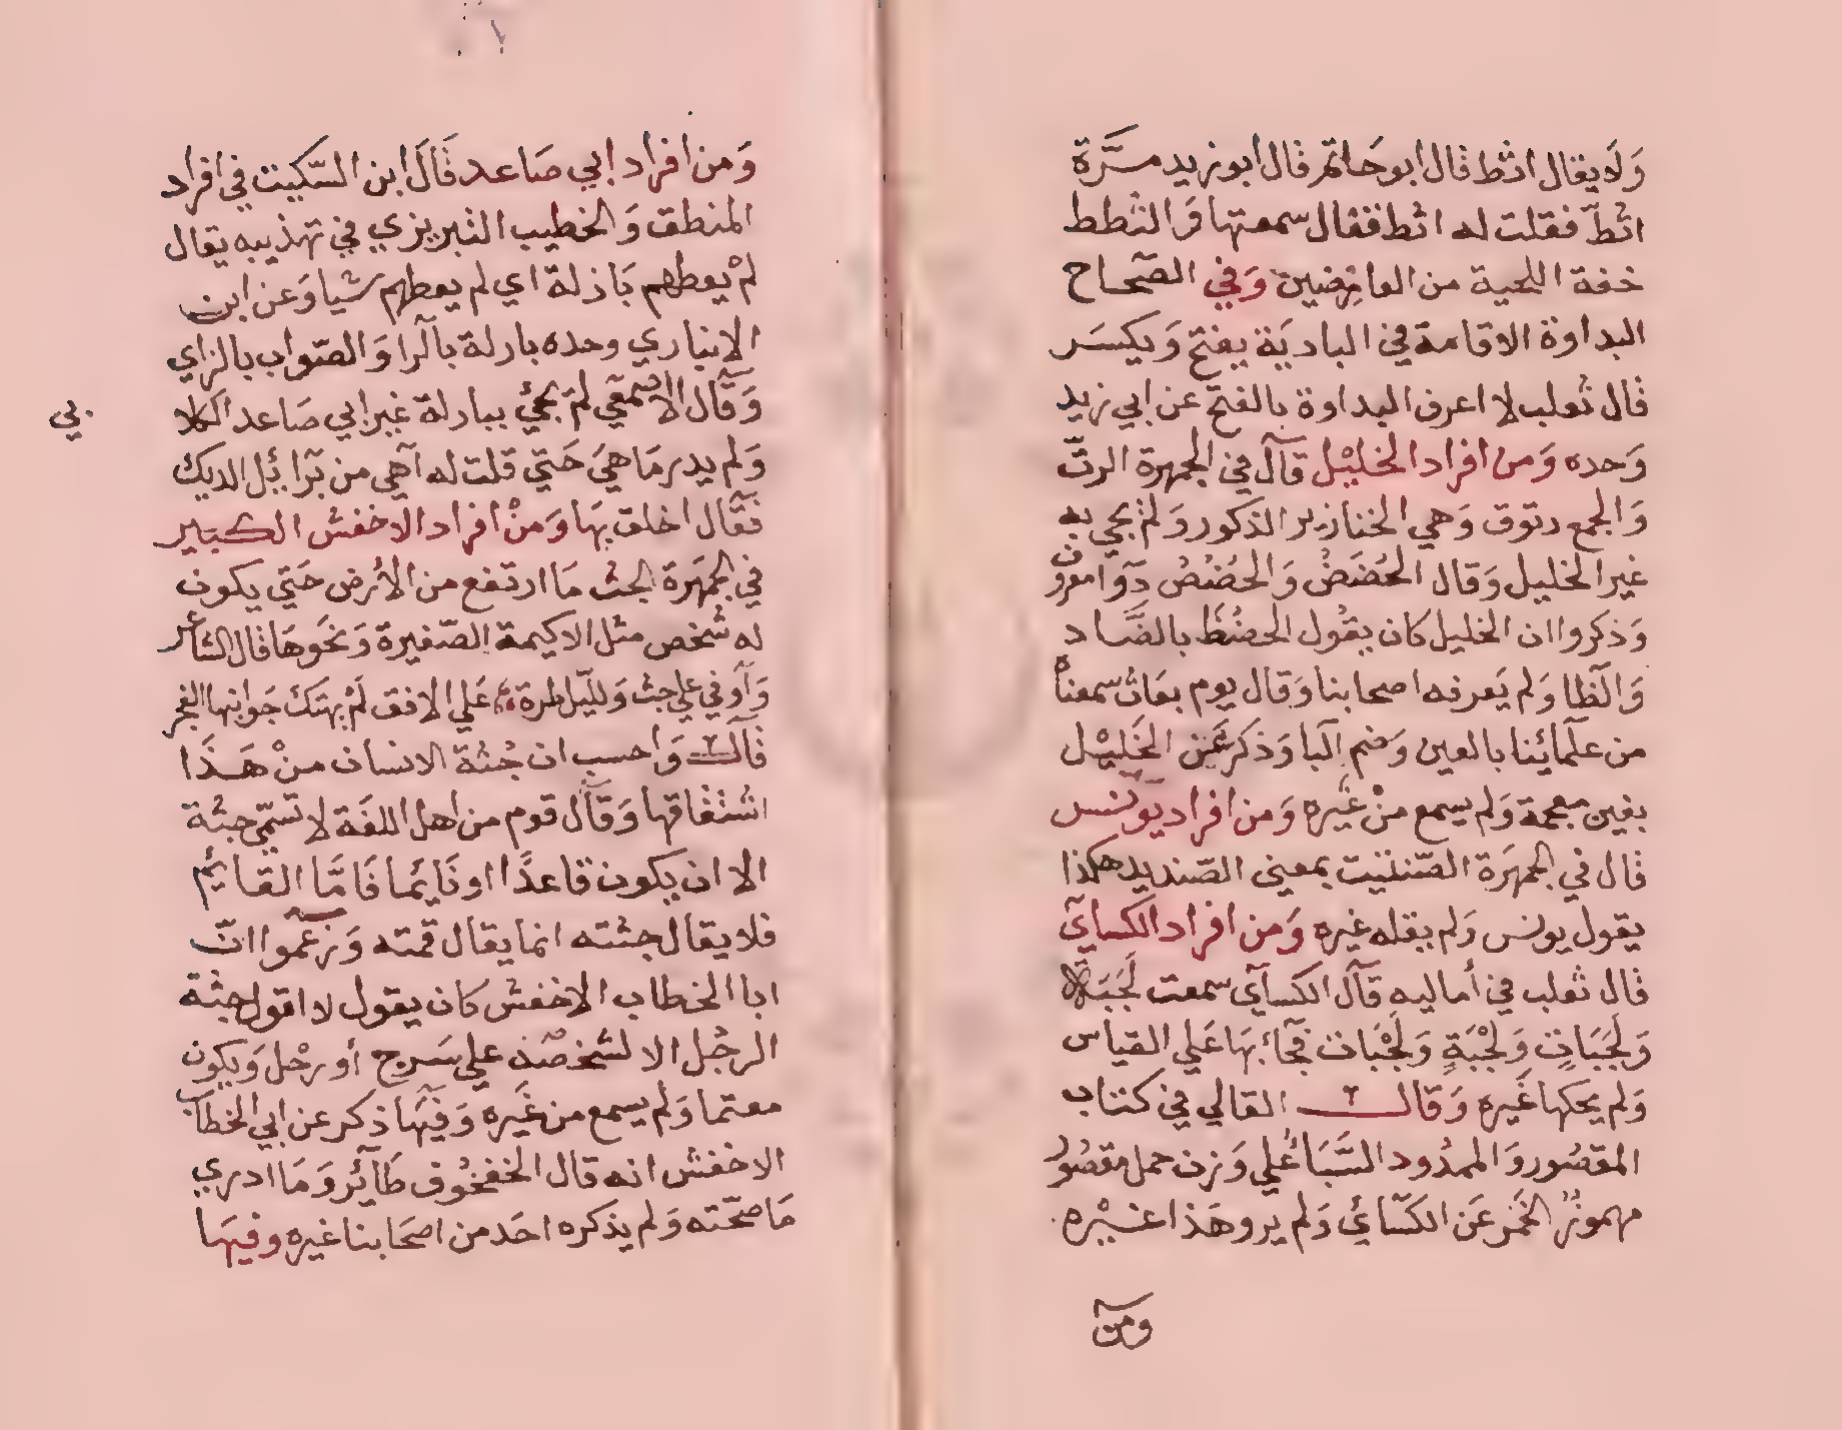 وَلَا يقال اثط قال ابو حَاتم قال ابو زيد مَرَّة
اثطّ فقلت له اثط فقال سمعتها وَالثطط
خفة اللحية من العارضين وَفي الصّحاح
البداوة الاقامة في الباديَة يفتح وَيكسَر
قال ثعلب لا اعرف البداوة بالفتح عن ابي زيد
وَحده وَمن افراد الخليْل قال في الجمهرة الرتّ
وَالجمع رتوق وَهي الخنازير الذكور وَلمْ يجي به
غير الخليل وَقال الحُضَضُ وَالحُضُضُ دَوا معروف
وَذكروا ان الخليل كان يقُول الحضُظ بالضَّاد
وَالظا وَلم يَعرفه اصحابنا وَقال يوم بعَاث سمعناه
من علمائنا بالعين وَضم البا وَذكر عَن الخَليْل
بغين معجمة وَلم يسمع منْ غيره وَمن افراد يونس
قال في الجمهَرَة الصّنتيت بمعنى الصّنديد هكذا
يقول يونس وَلم يقله غيره وَمن افراد الكسآي
قال ثعلب في أماليه قال الكسآي سمعت لَجَبَة
وَلَجَبَاتٍ وَلَجْبَةٍ وَلَجْبَات فجَاء بهَا عَلي القياس
وَلم يحكها غَيره وَقال القالي في كتاب
المقصُور وَالممدُود السَّبَا عَلي وَزن حمل مقصُور
مهموزٌ الخَمر عَن الكسّائي وَلم يرو هَذا غيْره
ومن
وَمن افراد ابي صَاعد قَالَ ابن السّكيت في افراد
المنطق وَالخطيب التبريزي في تهذيبه يقال
لمْ يعطهم بَاذلة اي لم يعطهم شيا وَعن ابن
الانباري وحده بارلة بالرا وَالصّواب بالزاي
وَقال الاصْمعي لم يجئ ببادلة غير ابي صَاعد الكلا
بي
وَلم يدر مَا هيَ حَتي قلت له آهي من بَرائل الديك
فقال اخلق بهَا وَمنْ افراد الاخفش الكبير
في الجمهَرَة الجث مَا ارتفع من الأرض حَتي يكون
له شخص مثل الاكيمة الصّغيرة وَنحَوهَا قال الشاعر
وَاَوفي علي جث وَلليّل طرة عَلي الافق لَمْ يهتك جَوانبها الفجر
قال وَاحسب ان جُثة الانسان منْ هَذَا
اشْتقاقها وَقال قوم من اهل اللغَة لا تسمّي جثة
الا ان يكون قاعدًا او نَايما فَامَّا القايم
فلا يقال جثته انما يقال قمته وَزعموا انّ
ابا الخطاب الاخفش كان يقول لا اقول جثة
الرجُل الا لشخصه علي سَرج أو رحْل وَيكون
معتما وَلم يسمع من غَيره وَفيهَا ذكر عن ابي الخطاب
الاخفش انه قال الخفخُوف طَآئر وَمَا ادري
مَا صحّته وَلم يذكره احَد من اصحَابنا غيره وفيهَا